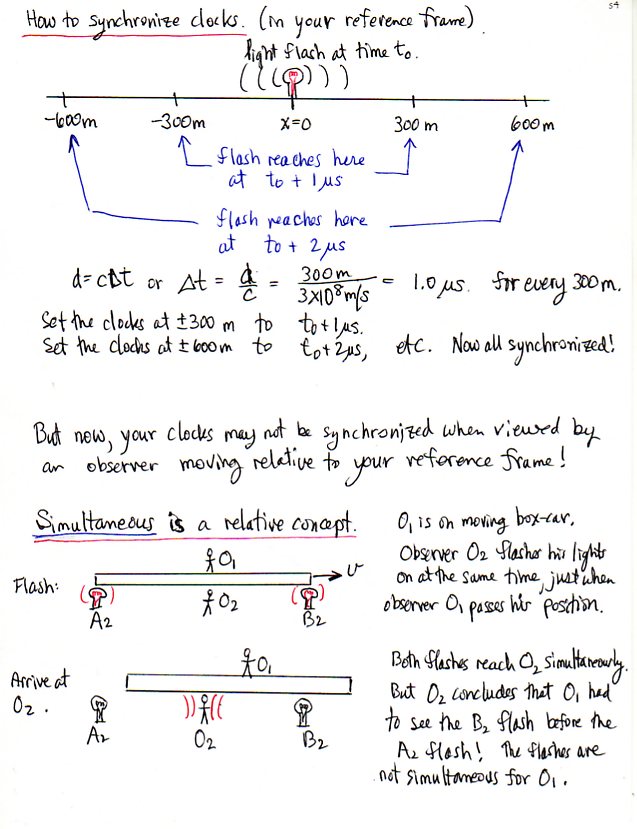 s4
How to synchronize clocks. (in your reference frame)
light flash at time to.
-600m -300m x=0 300 m 600m
flash reaches here
at to + 1 μs
flash reaches here
at to + 2 μs
d=cΔt or Δt = d/c = 300 m / 3×10⁸ m/s = 1.0 μs. for every 300 m.
Set the clocks at ±300 m to to+1μs.
Set the clocks at ±600m to to+2μs, etc. Now all synchronized!
But now, your clocks may not be synchronized when viewed by
an observer moving relative to your reference frame!
Simultaneous is a relative concept.
O₁ is on moving box-car.
Observer O₂ flashes his lights
on at the same time, just when
observer O₁ passes his position.
Flash:
O₁
v
A₂ O₂ B₂
Both flashes reach O₂ simultaneously.
But O₂ concludes that O₁ had
to see the B₂ flash before the
A₂ flash! The flashes are
not simultaneous for O₁.
Arrive at
O₂.
O₁
A₂ O₂ B₂